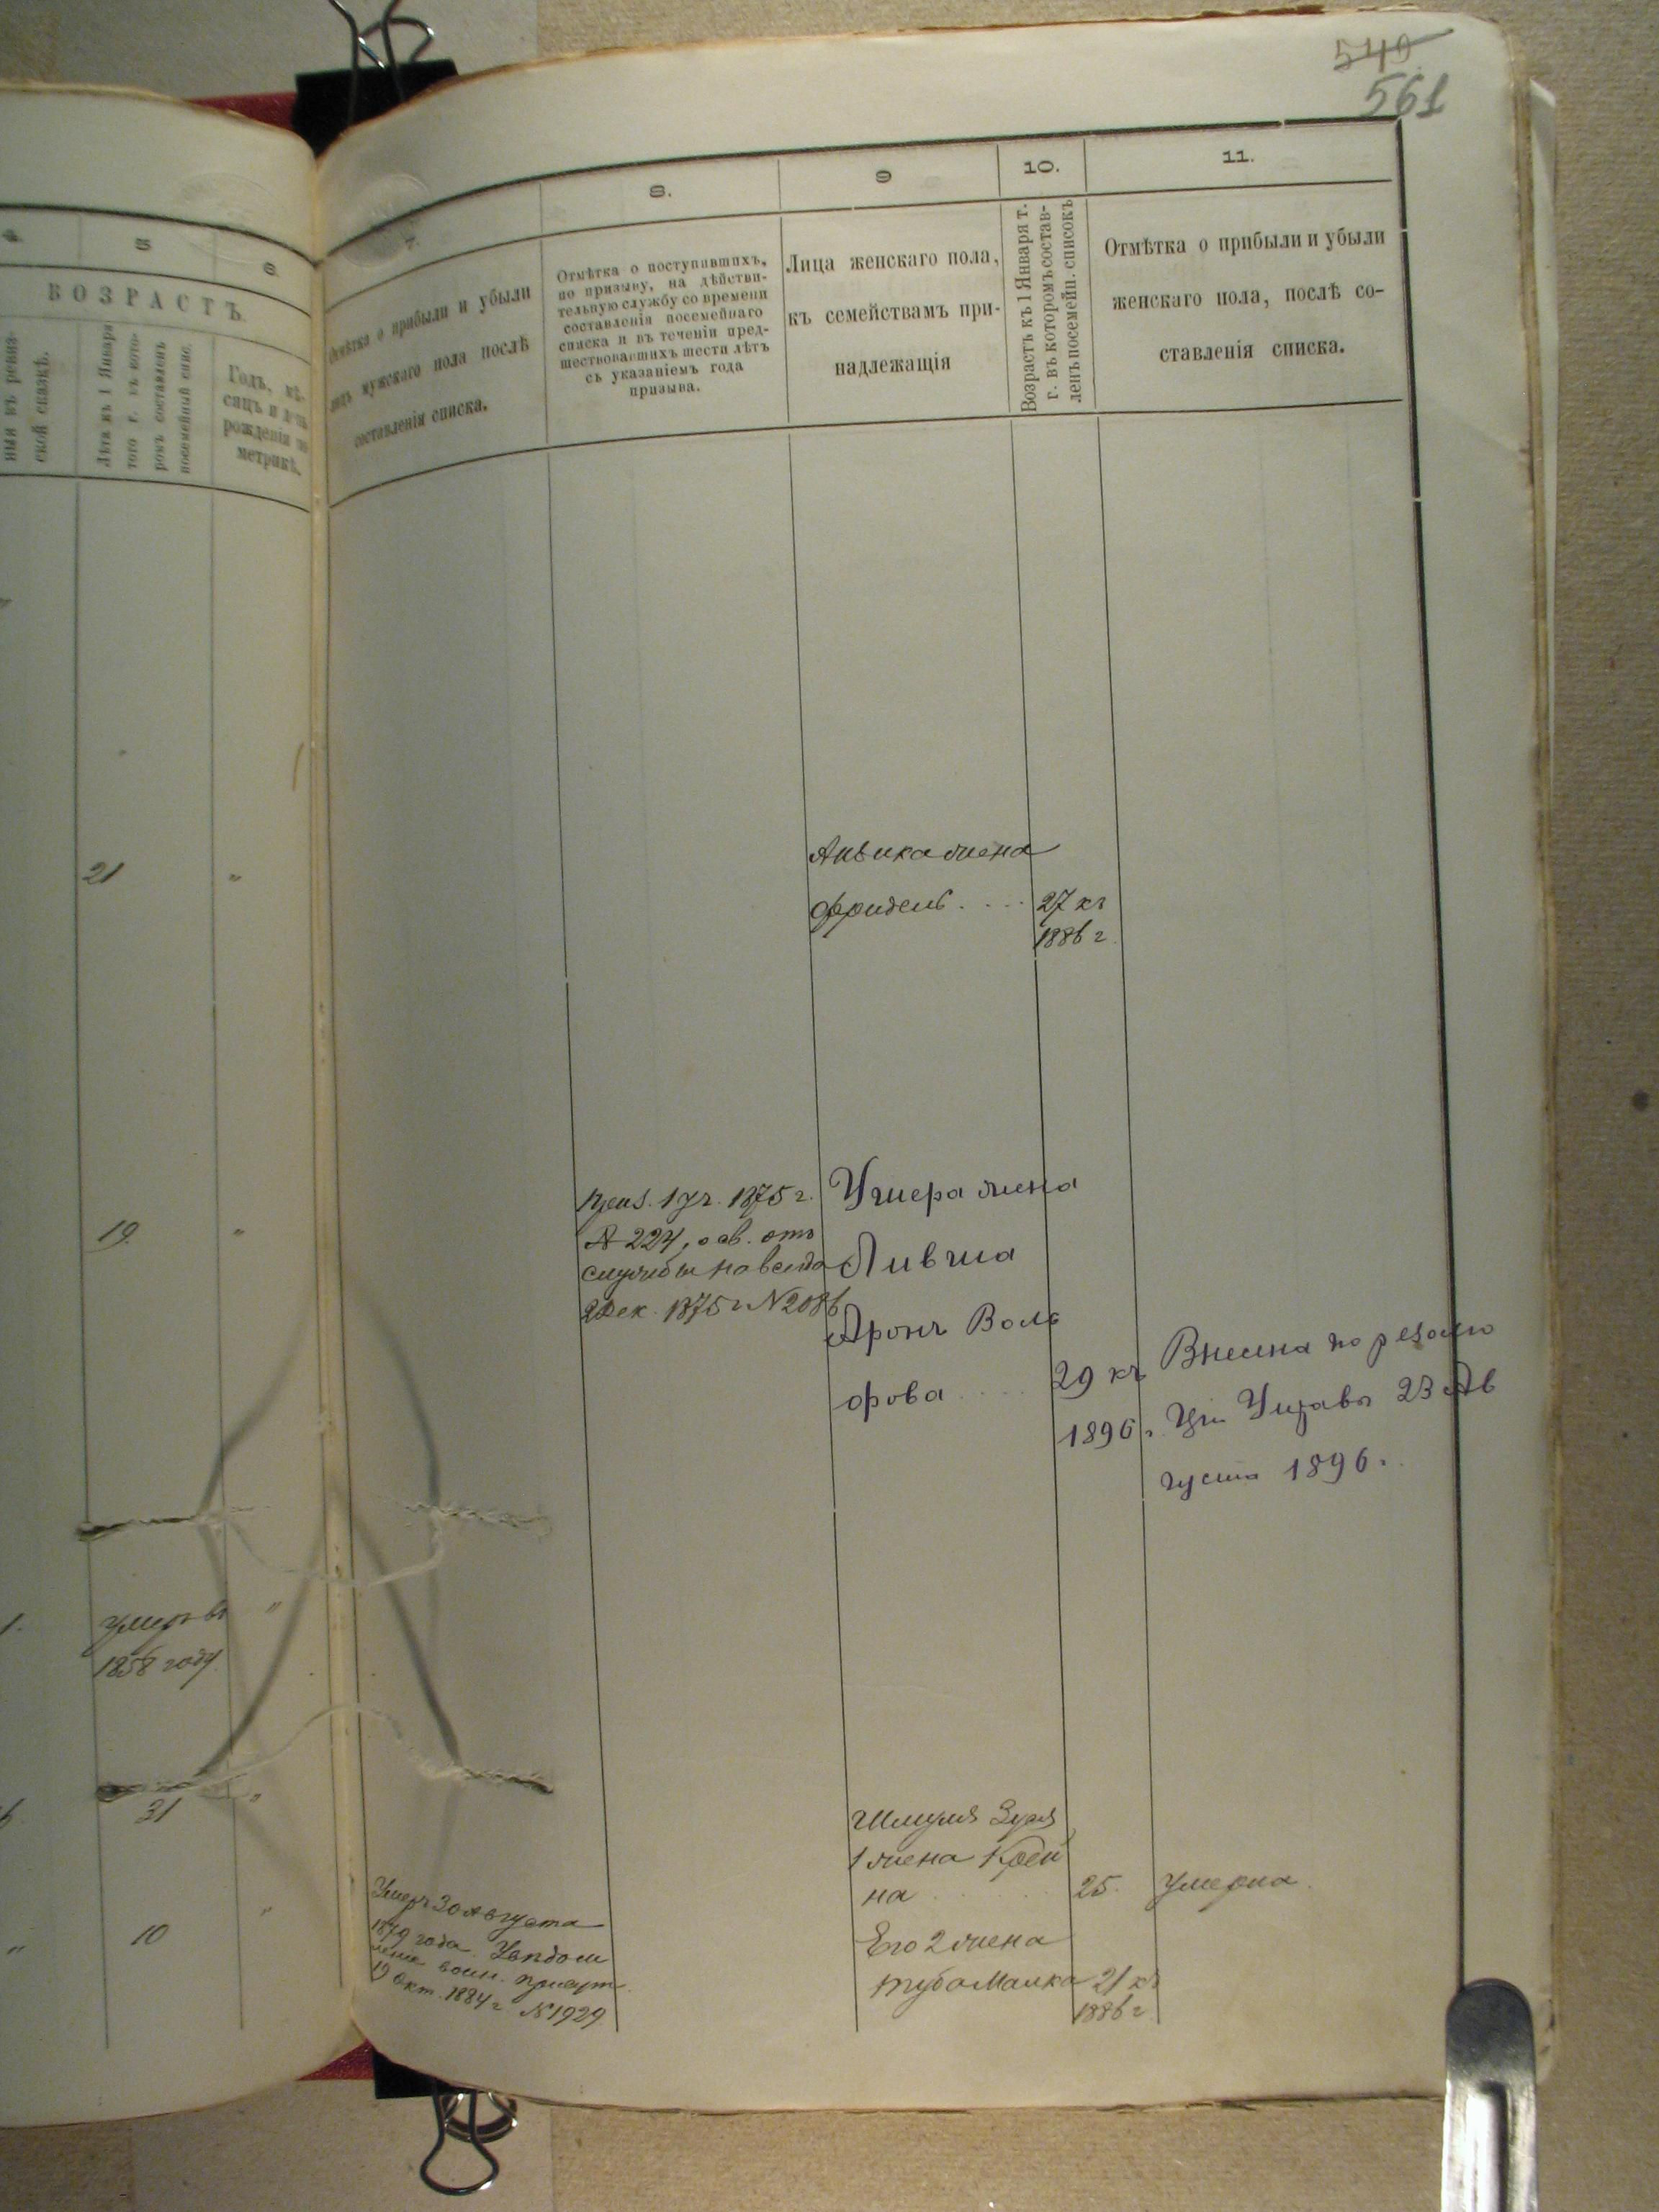 549
561
4.
5
6
ВОЗРАСТЪ
ныя въ ревиз-
ской сказкѣ.
Лѣта къ 1 Января
того г. въ кото-
ромъ составленъ
посемейный спис.
Годъ, мѣ-
сяцъ и день
рожденія по
метрикѣ.
21 "
19. "
1.
умеръ въ "
1858 году.
31 "
" 10 "
7.
8.
9
10.
11.
Отмѣтка о прибыли и убыли
лицъ мужскаго пола послѣ
составленія списка.
Отмѣтка о поступившихъ,
по призыву, на дѣйстви-
тельную службу со времени
составленія посемейнаго
списка и въ теченіи пред-
шествовавшихъ шести лѣтъ
съ указаніемъ года
призыва.
Лица женскаго пола,
къ семействамъ при-
надлежащія
Возрастъ къ 1 Января т.
г. въ которомъ состав-
ленъ посемейн. списокъ
Отмѣтка о прибыли и убыли
женскаго пола, послѣ со-
ставленія списка.
жена
Фридель . . . . 27 къ
1886 г.
Приз. 1 уч. 1875 г.
№ 224, осв. отъ
службы навсегда
2 Дек. 1875 г. № 2086
Ушера жена
Ливша
Аронъ Воль
фова . . . . 29 къ
1896 г.
Внесена по резолю
ціи Управы 23 Ав
густа 1896 г.
Умеръ 30 Августа
1879 года. Увѣдом
леніе воин. присут.
19 Окт. 1884 г. № 1929
Шмуля
1 жена Крей
на . . . . 25. умерла.
Его 2 жена
Малка 21 къ
1886 г.